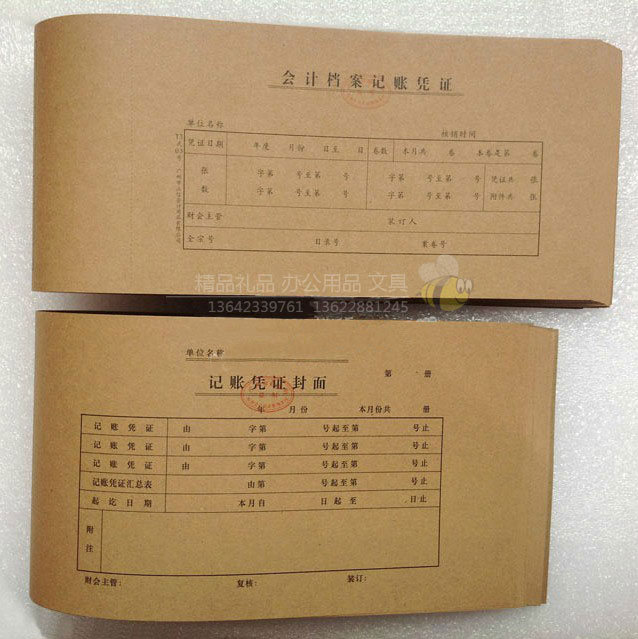 会计档案记账凭证
单位名称 核销时间
凭证日期 年度 月份 日至 日 卷数 本月共 卷 本卷是第 卷
张数 字第 号至第 号 字第 号至第 号 凭证共 张
字第 号至第 号 字第 号至第 号 附件共 张
财会主管 装订人
全宗号 目录号 案卷号
精品礼品 办公用品 文具
13642339761 13622881245
单位名称
记账凭证封面
第 册
年 月份 本月份共 册
记账凭证 由 字第 号起至第 号止
记账凭证 由 字第 号起至第 号止
记账凭证 由 字第 号起至第 号止
记账凭证汇总表 由第 号起至第 号止
起讫日期 本月自 日起至 日止
附注
财会主管: 复核: 装订: